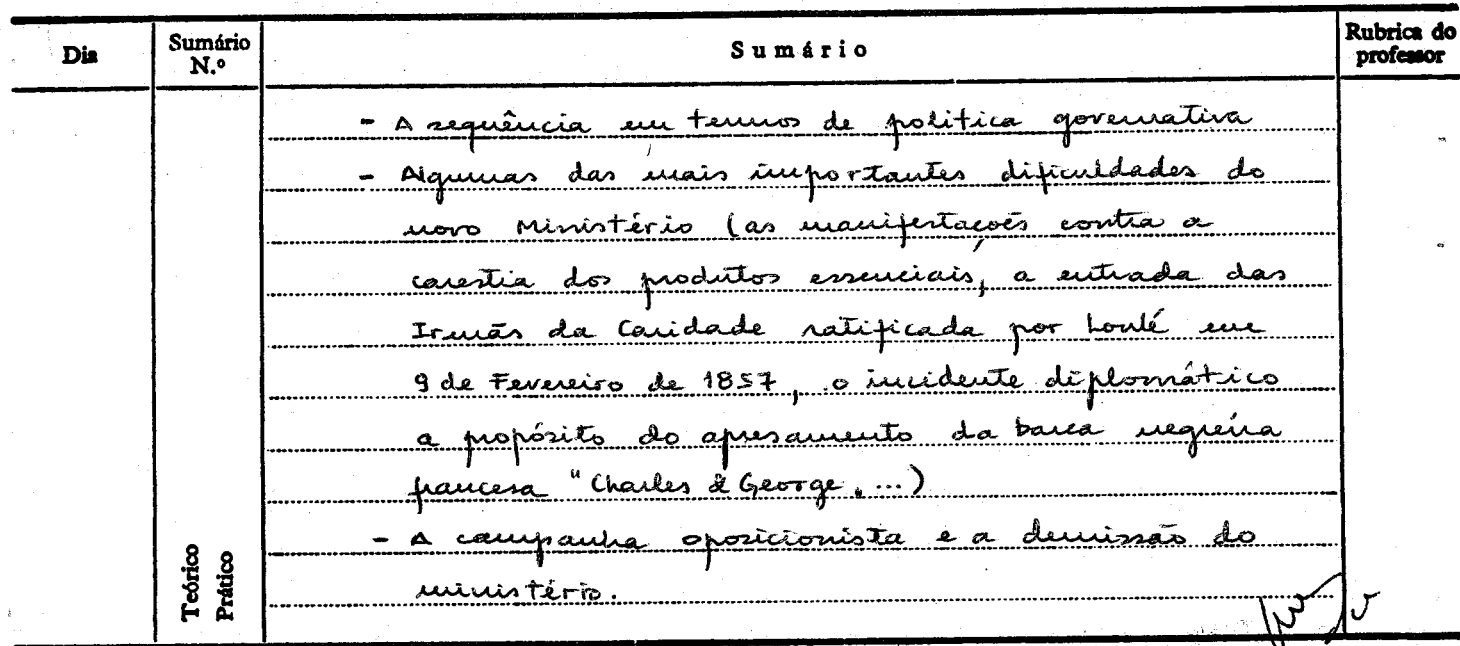 Dia Sumário N.º Sumário Rubrica do professor
- A sequência em termos de política governativa
- Algumas das mais importantes dificuldades do
novo Ministério (as manifestações contra a
carestia dos produtos essenciais, a entrada das
Irmãs da Caridade ratificada por Loulé em
9 de Fevereiro de 1857, o incidente diplomático
a propósito do apresamento da barca negreira
francesa "Charles & George" ...)
- A campanha oposicionista e a demissão do
ministério.
Teórico
Prático